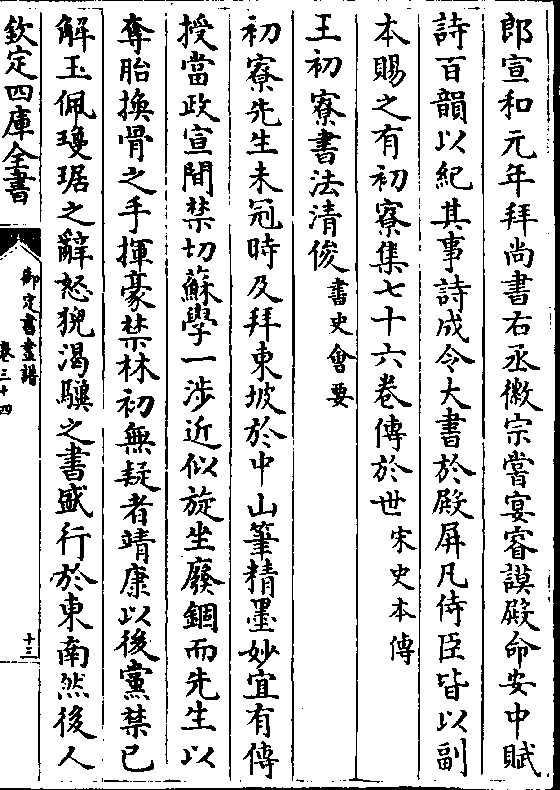 郎宣和元年拜尚書右丞徽宗嘗宴睿謨殿命安中賦
詩百韻以紀其事詩成令大書於殿屏凡侍臣皆以副
本賜之有初寮集七十六卷傳於世宋史本傳
王初寮書法清俊書史會要
初寮先生未冠時及拜東坡於中山筆精墨妙宜有傳
授當政宣間禁切蘇學一涉近似旋坐廢錮而先生以
奪胎換骨之手揮豪禁林初無疑者靖康以後黨禁已
解玉佩瓊琚之辭怒猊渴驥之書盛行於東南然後人
欽定四庫全書
御定書畫譜
卷三十四
十三